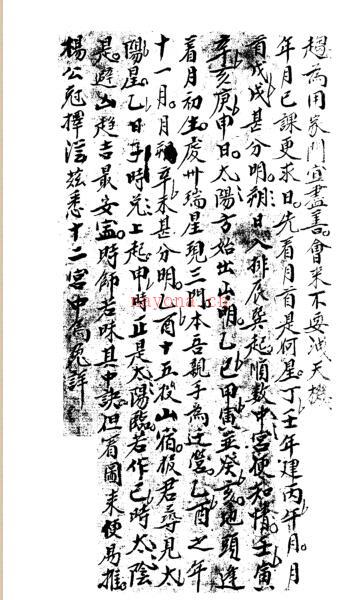 趨為用家門宜盡善會来不要泄天機
年月已課更求日先看月首是何星丁壬年建丙午月月
首戊戌甚分明朔日入排辰巽起順数中宮便知情壬寅
辛亥庚申日太陽方始出山明乙巳甲寅並癸亥地頭逢
着月初生處州瑞星現三門本吾親手為迁營乙酉之年
十一月月朔辛未甚分明乙酉十五投山宿扳君尋見太
陽星乙日子時兌上起申時正是太陽臨若作巳時太陰
是避凶趨吉最安寍時師若昧其中訣但看圖来便易推
楊公冠擇滛兹悉十二宮中為兔詳
mayona.cn